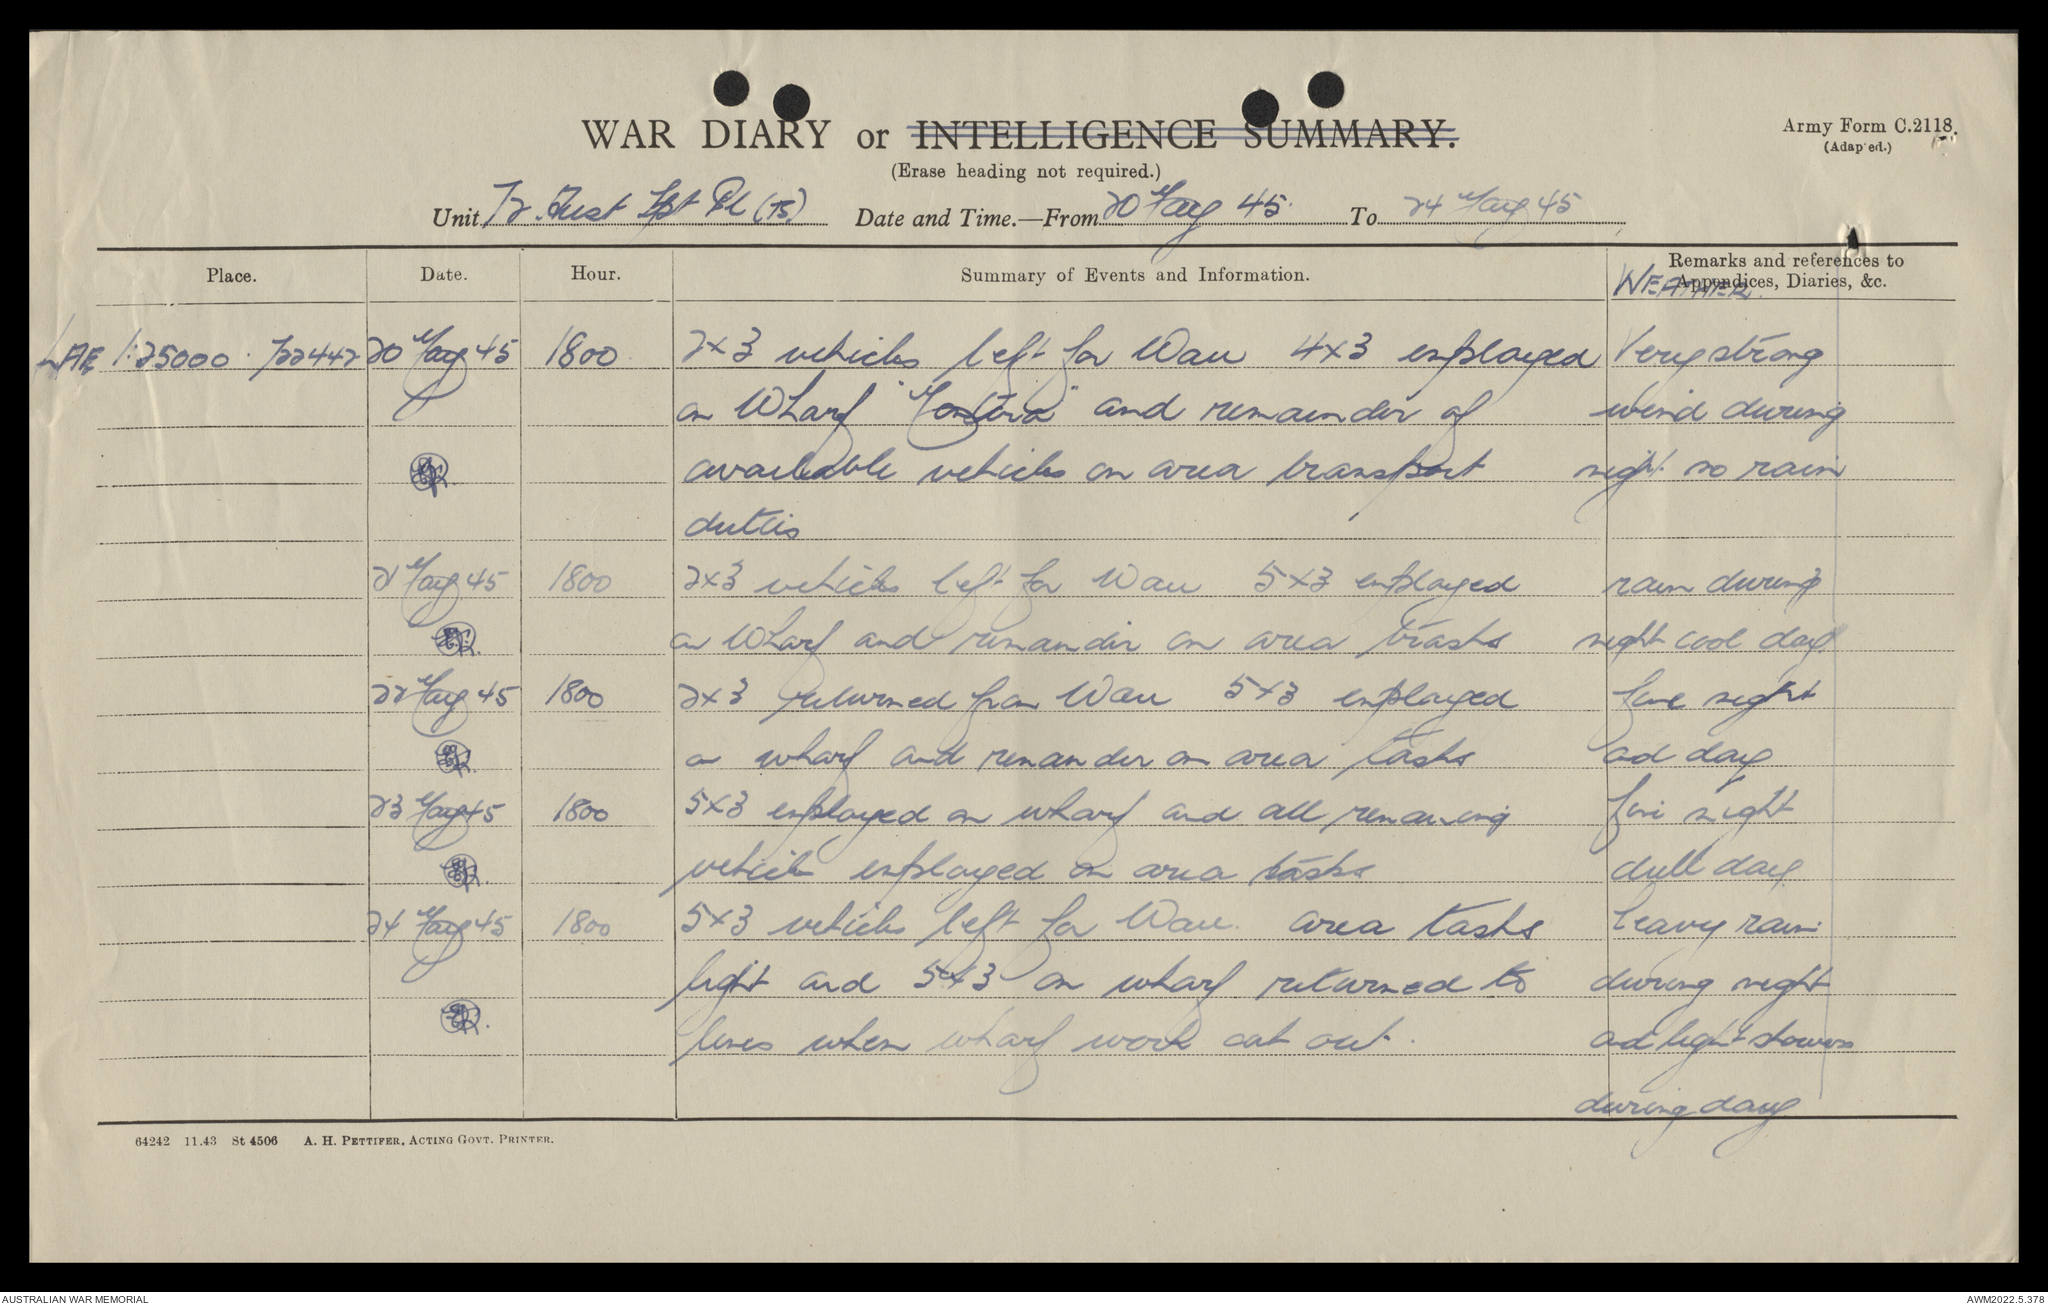 WAR DIARY or INTELLIGENCE SUMMARY.
Army Form C.2118.
(Adapted.)
(Erase heading not required.)
Unit 72 Aust Tpt Pl (TS) Date and Time.—From 20 May 45 To 24 May 45
Place. Date. Hour. Summary of Events and Information. Remarks and references to Appendices, Diaries, &c.
WEATHER.
LAE 1:25000 722442 20 May 45 1800 2x3 vehicles left for Wau 4x3 employed Very strong
on Wharf and remainder of wind during
available vehicles on area transport night no rain
duties
21 May 45 1800 2x3 vehicles left for Wau 5x3 employed rain during
on Wharf and remainder on area tasks night cool day
22 May 45 1800 2x3 returned from Wau 5x3 employed fine night
on wharf and remainder on area tasks and day
23 May 45 1800 5x3 employed on wharf and all remaining fine night
vehicles employed on area tasks dull day
24 May 45 1800 5x3 vehicles left for Wau. area tasks heavy rain
light and 5x3 on wharf returned to during night
lines when wharf work cut out. and light showers
during day
64242 11.43 St 4506 A. H. PETTIFER, ACTING GOVT. PRINTER.
AUSTRALIAN WAR MEMORIAL AWM2022.5.378